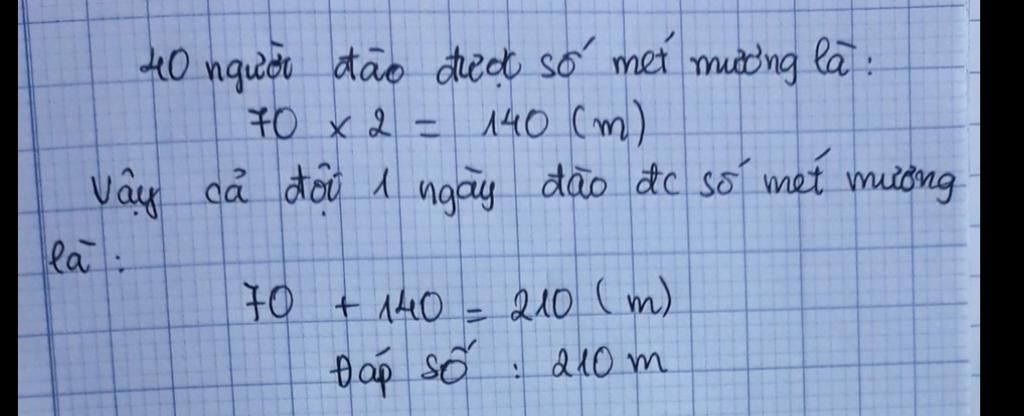 40 người đào được số mét mương là :
70 x 2 = 140 (m)
Vậy cả đội 1 ngày đào đc số mét mương
là :
70 + 140 = 210 (m)
Đáp số : 210 m